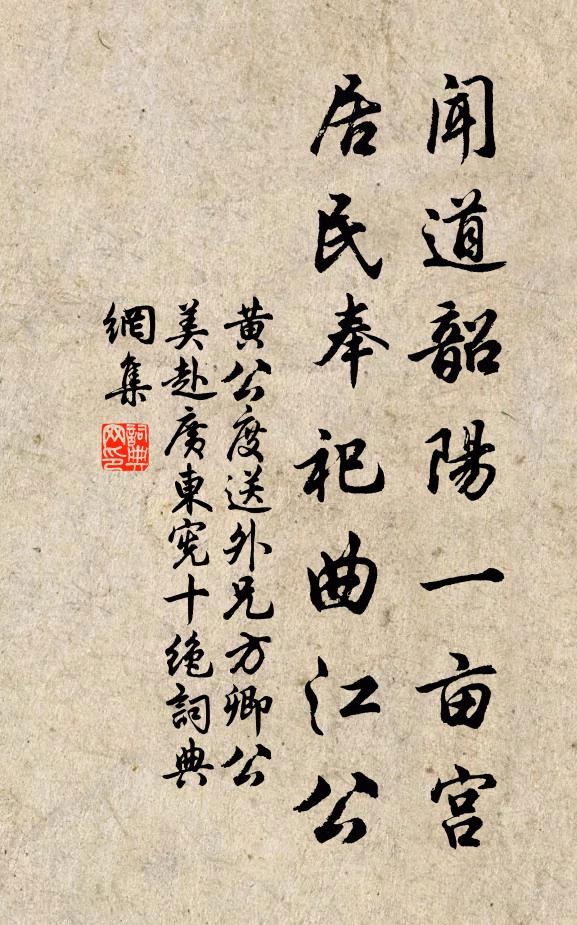 聞道韶陽一亩宫
居民奉祀曲江公
黄公度送外兄方卿公
美赴廣東宪十絶詞典
網集
詞典
网印